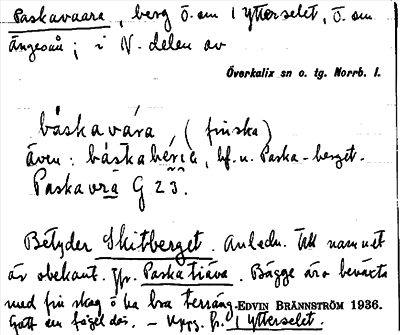 Paskavaara, berg ö. om Ytterselet, ö. om
Ängesån; i N. delen av
Överkalix sn o. tg. Norrb. l.
båskavára, (finska)
även: båskabérja, bf. n. Paska-berget.
Paskavra G 23.
Betyder Skitberget. Anledn. till namnet
är obekant. Jfr. Paskatiäva. Bägge äro beväxta
med fin skog o ha bra terräng. EDVIN BRÄNNSTRÖM 1936.
Gott en fågel där. - Uppg. fr. Ytterselet.